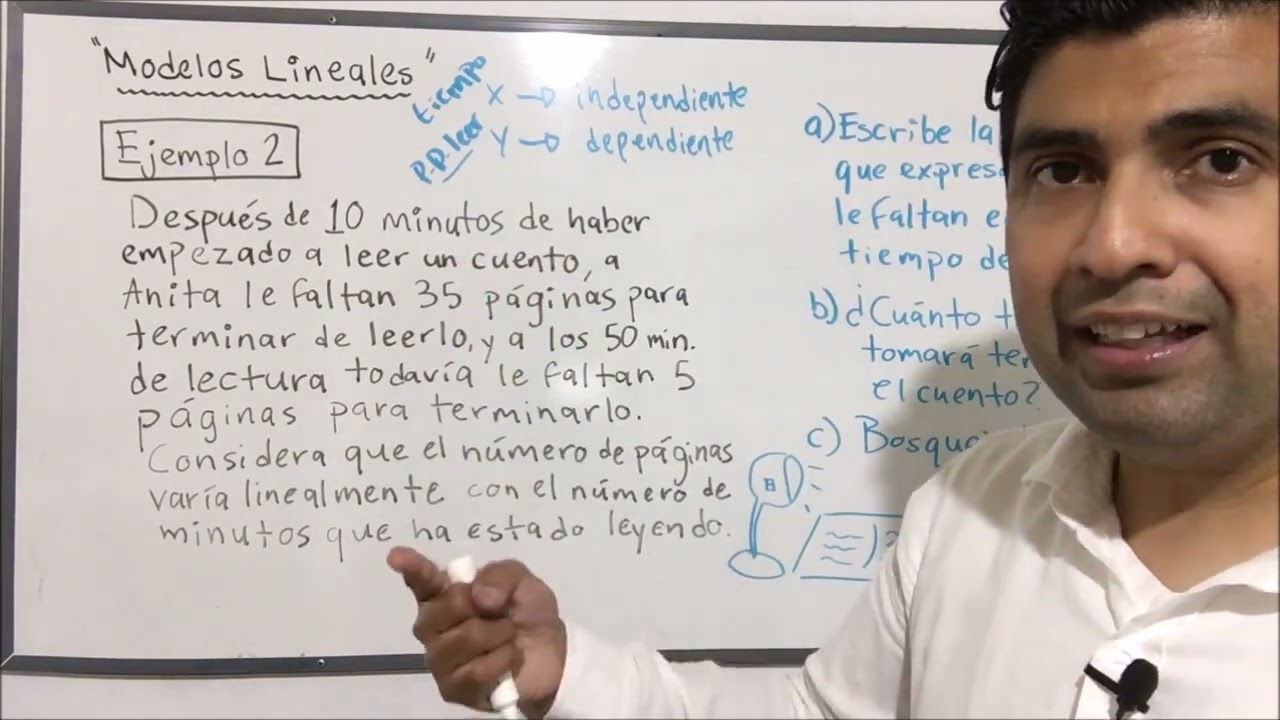 "Modelos Lineales"
Ejemplo 2
tiempo X → independiente
p.p. leer Y → dependiente
Después de 10 minutos de haber
empezado a leer un cuento, a
Anita le faltan 35 páginas para
terminar de leerlo, y a los 50 min.
de lectura todavía le faltan 5
páginas para terminarlo.
Considera que el número de páginas
varía linealmente con el número de
minutos que ha estado leyendo.
a) Escribe la
que expres
le faltan e
tiempo de
b) ¿Cuánto t
tomará te
el cuento?
c) Bosqu